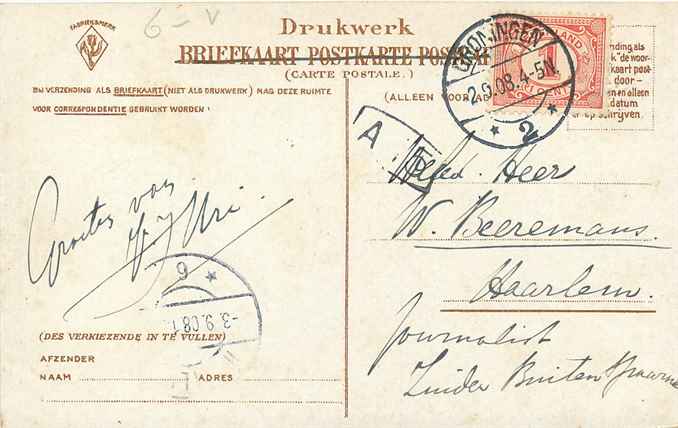 6 - V
FABRIEKSMERK
Drukwerk
BRIEFKAART POSTKARTE POSTCAR
(CARTE POSTALE.)
BIJ VERZENDING ALS BRIEFKAART (NIET ALS DRUKWERK) MAG DEZE RUIMTE
VOOR CORRESPONDENTIE GEBRUIKT WORDEN
(ALLEEN VOOR AD
nding als
k" de woor-
kaart post-
door-
en en alleen
datum
schrijven.
NEDERLAND
1
CENT
GRONINGEN
2.9.08.4-5N.
* 2 *
A
Groeten van
6 *
-3.9.08.
WelEd. Heer
W. Beeremans.
Haarlem.
journalist
Zuider Buiten Spaarne
(DES VERKIEZENDE IN TE VULLEN)
AFZENDER
NAAM ADRES